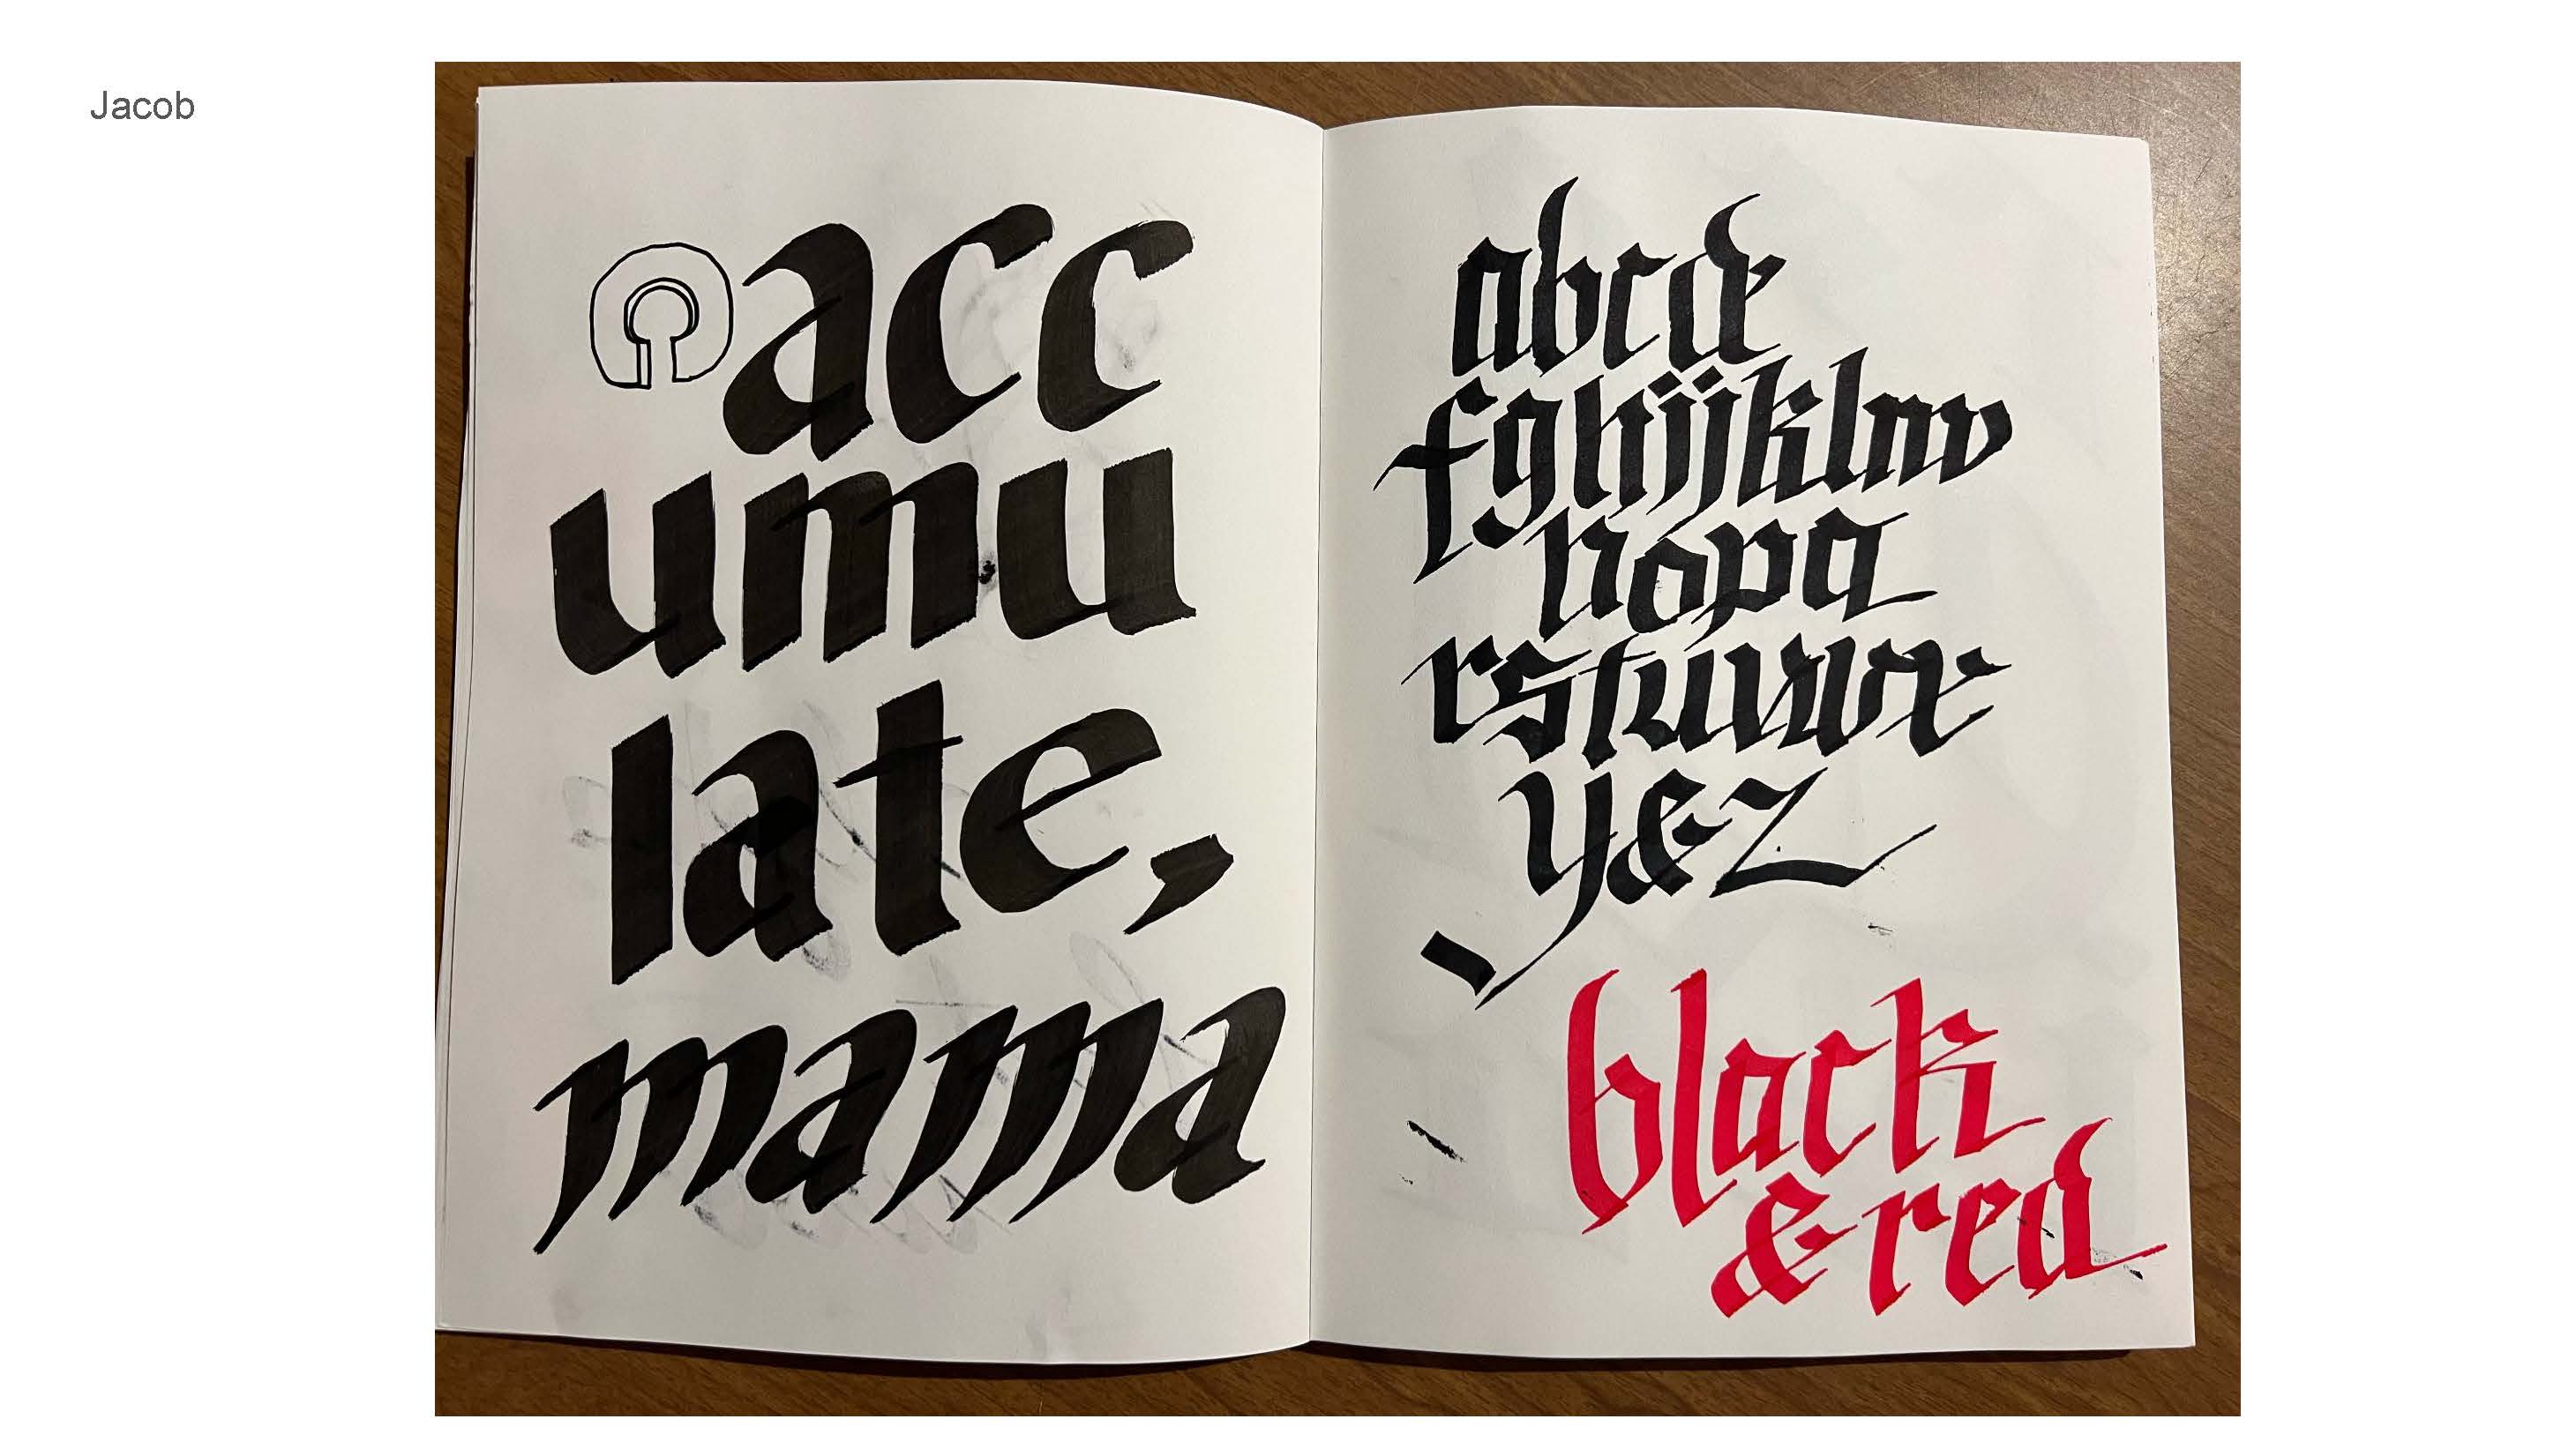 Jacob
acc
umu
late,
mama
abcde
fghijklm
nopq
rstuvwx
y&z
black
& red